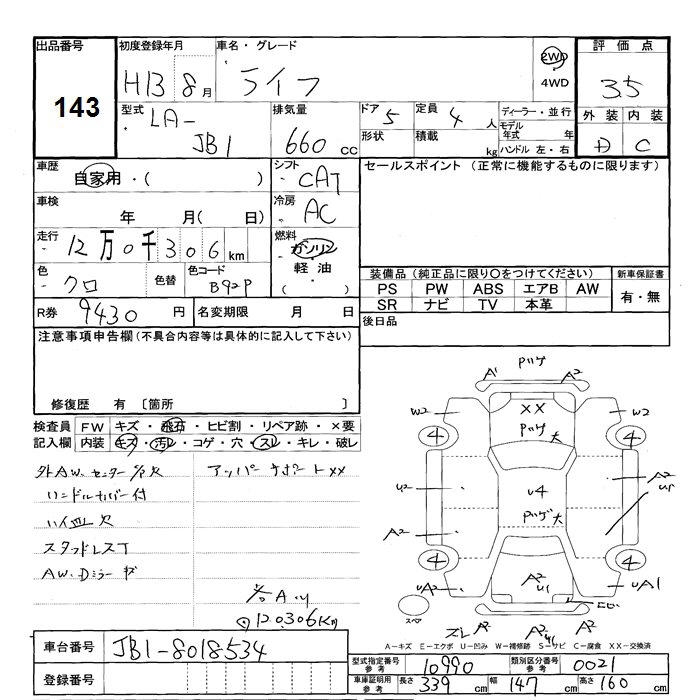 出品番号
143
初度登録年月
H13 8月
車名・グレード
ライフ
2WD
4WD
評価点
3.5
型式
LA-
JB1
排気量
660 cc
ドア 5
形状
定員 4 人
積載 kg
ディーラー・並行
モデル年式 年
ハンドル 左・右
外装 内装
D C
車歴
自家用・( )
シフト
CAT
セールスポイント (正常に機能するものに限ります)
車検
年 月( 日)
冷房
AC
走行
12万0千306km
燃料
ガソリン
軽油
( )
色
クロ
色替
色コード
B92P
装備品(純正品に限り〇をつけてください)
新車保証書
PS PW ABS エアB AW
SR ナビ TV 本革
有・無
R券 9430 円
名変期限 月 日
後日品
注意事項申告欄(不具合内容等は具体的に記入して下さい)
修復歴 有 〔箇所
検査員
記入欄
FW キズ・飛石・ヒビ割・リペア跡・×要
内装 キズ・汚レ・コゲ・穴・スレ・キレ・破レ
外AW.センター欠
アッパーサポートXX
ハンドルカバー付
ハイ皿欠
スタッドレスT
AW.Dミラーキズ
120306Km
Pハゲ
A1 A2
W2 XX W2
Pハゲ大
4 4
U2 U4 A2
U1
A2 Pハゲ大
4 4
UA2 A2 U1 UA1
スペア
スレ A2 A2 A2
A-キズ E-エクボ U-凹み W-補修跡 S-サビ C-腐食 XX-交換済
車台番号 JB1-8018534
登録番号
型式指定番号
参考
10990
類別区分番号
参考
0021
車庫証明用
参考
長さ 339 cm 幅 147 cm 高さ 160 cm